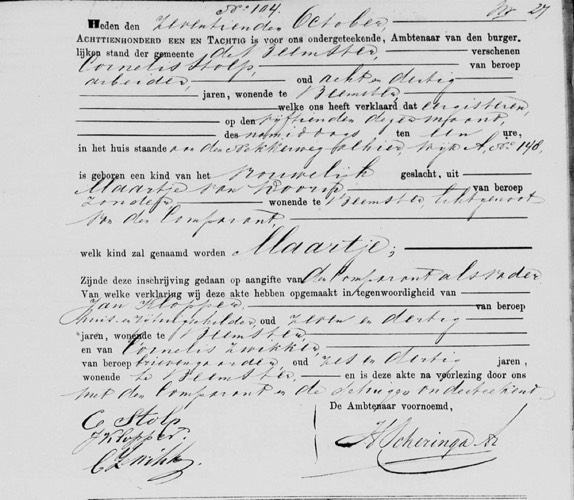 No 104. 27
Heden den zeventienden October,
ACHTTIENHONDERD EEN EN TACHTIG is voor ons ondergeteekende, Ambtenaar van den burger-
lijken stand der gemeente de Beemster, verschenen
Cornelis Stolp, van beroep
arbeider, oud acht en dertig
jaren, wonende te Beemster
welke ons heeft verklaard dat eergisteren,
op den vijftienden dezer maand,
des namiddags ten een ure,
in het huis staande aan den Nekkerweg alhier, wijk A, No 148,
is geboren een kind van het Vrouwelijk geslacht, uit
Maartje van Voorn van beroep
zonder, wonende te Beemster, Echtgenoot
van den Comparant,
welk kind zal genaamd worden Maartje;
Zijnde deze inschrijving gedaan op aangifte van den Comparant als vader
Van welke verklaring wij deze akte hebben opgemaakt in tegenwoordigheid van
Jan Klopper, van beroep
huis en, oud zeven en dertig
jaren, wonende te Beemster,
en van Cornelis Zwikker,
van beroep brievengaarder, oud zes en dertig jaren,
wonende te Beemster en is deze akte na voorlezing door ons
met den Comparant en de getuigen onderteekend.
De Ambtenaar voornoemd,
C Stolp
J Klopper.
C Zwikker.
Scheringa